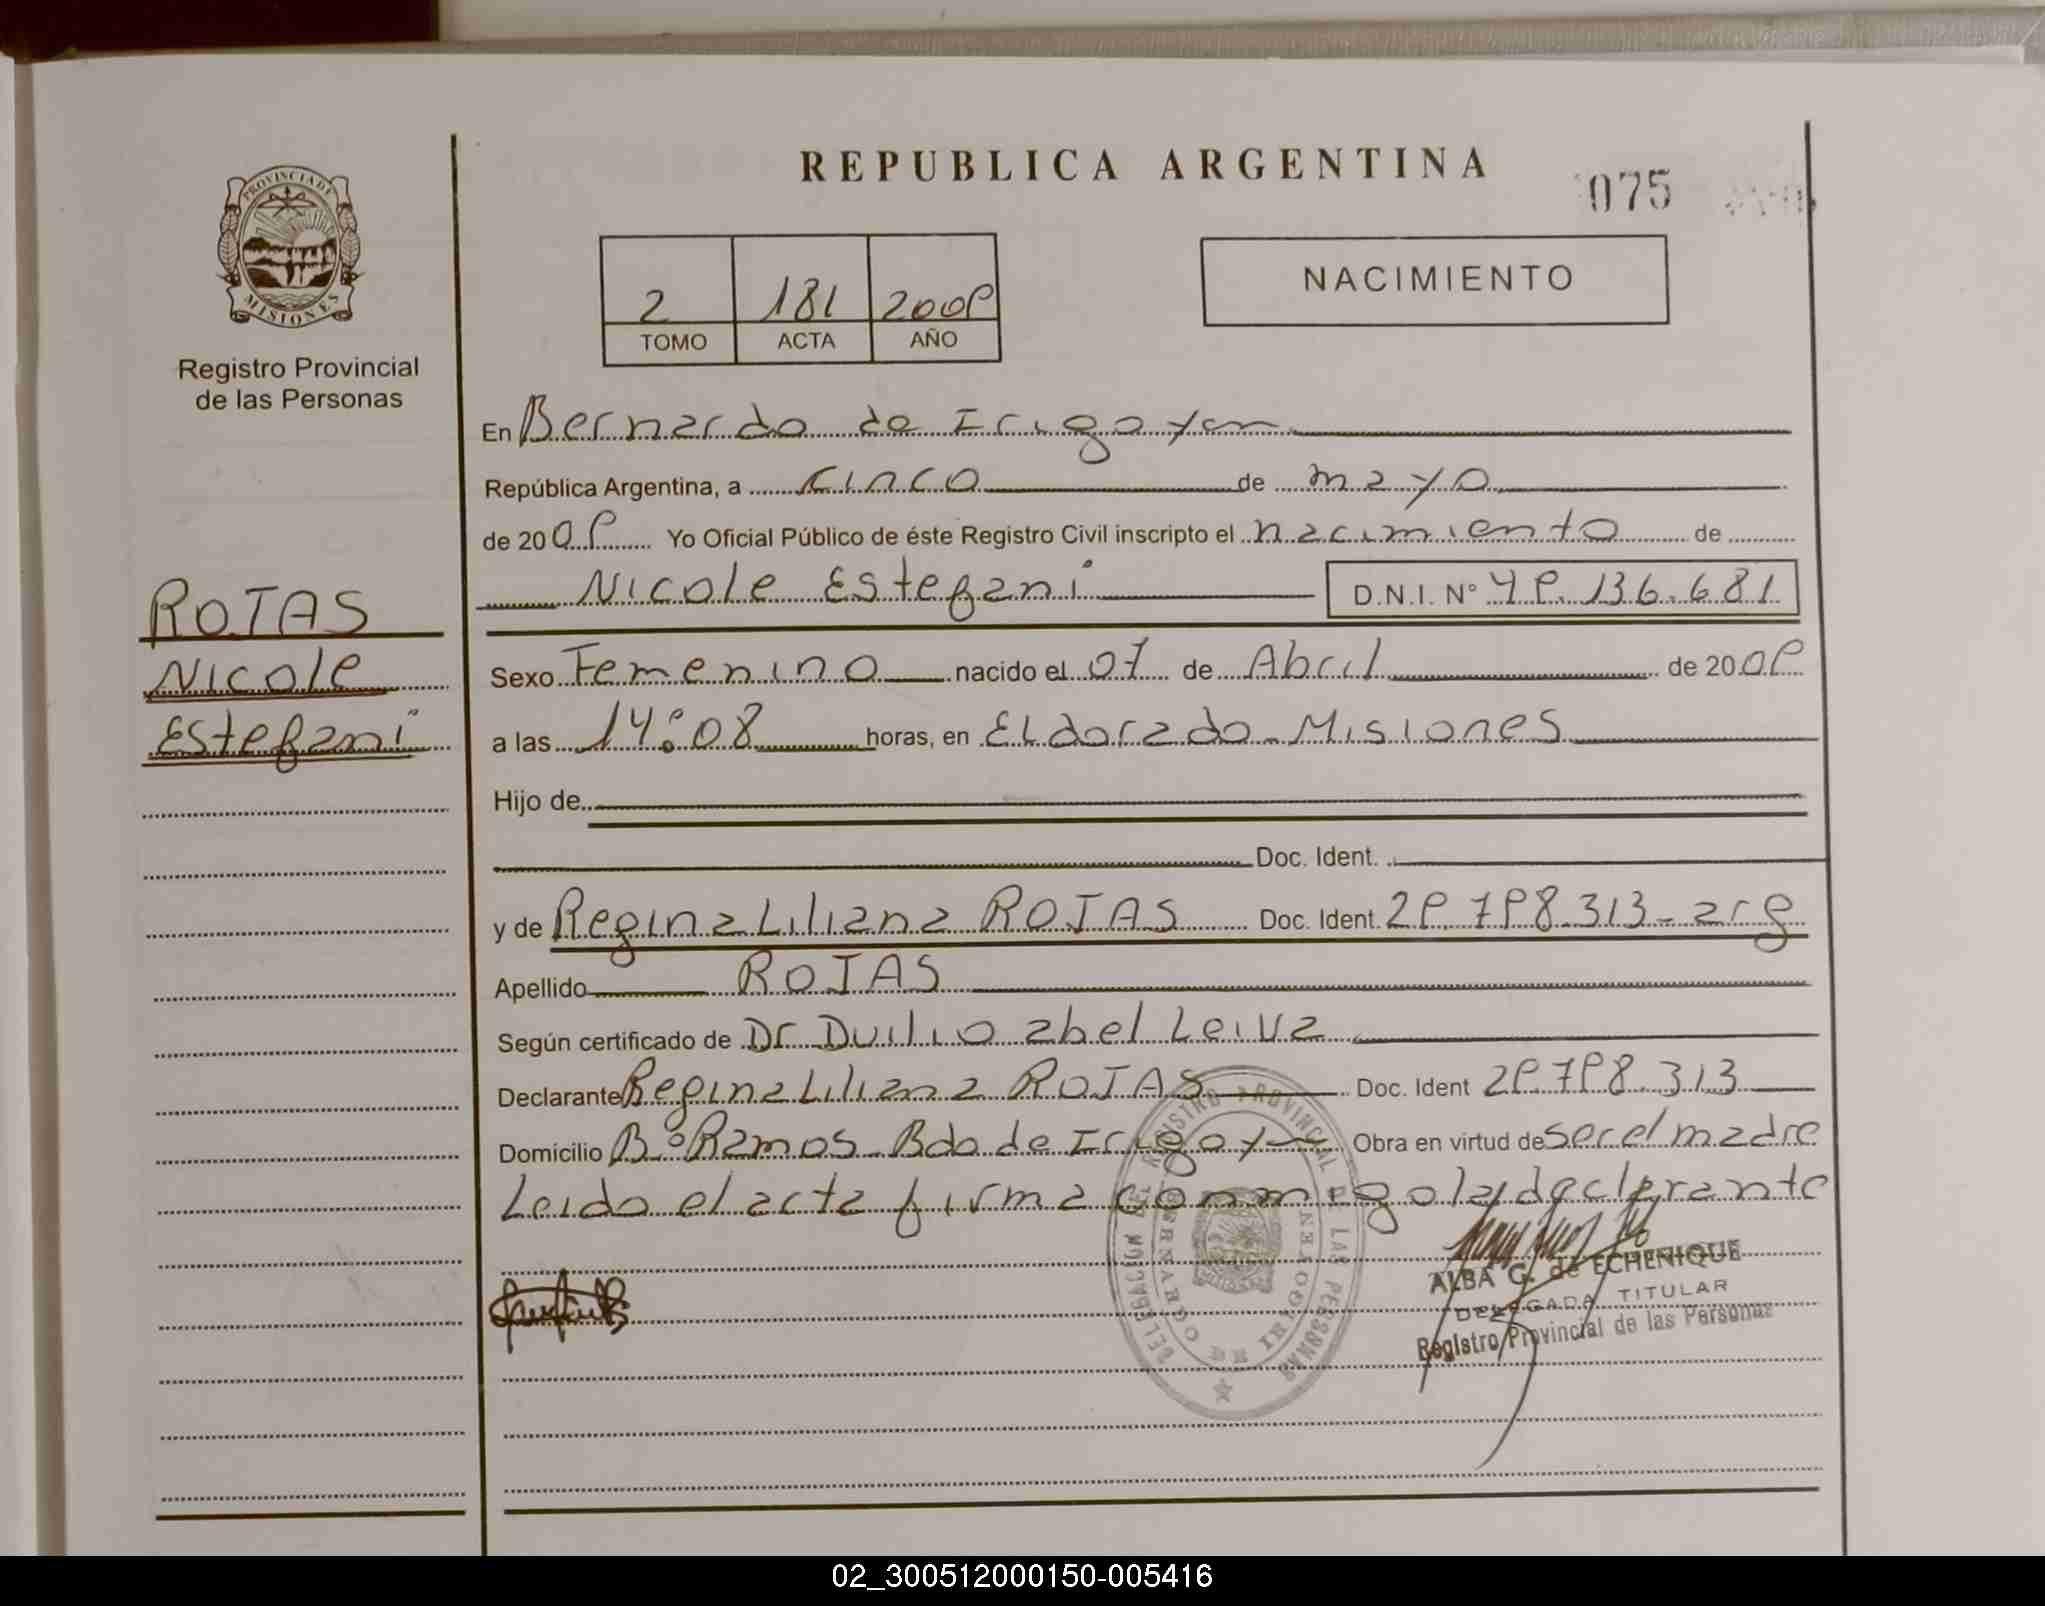 REPUBLICA ARGENTINA
075
PROVINCIA DE
MISIONES
Registro Provincial
de las Personas
2 181 2009
TOMO ACTA AÑO
NACIMIENTO
En Bernardo de Irigoyen
República Argentina, a cinco de mayo
de 2009 Yo Oficial Público de éste Registro Civil inscripto el nacimiento de
Nicole Estefani D.N.I. N° 49.136.681
ROJAS
Nicole
Estefani
Sexo Femenino nacido el 07 de Abril de 2009
a las 14:08 horas, en Eldorado - Misiones
Hijo de
Doc. Ident.
y de Regina Liliana ROJAS Doc. Ident. 29.798.313 - arg
Apellido ROJAS
Según certificado de Dr Duilio abel Leiva
Declarante Regina Liliana ROJAS Doc. Ident 29.798.313
Domicilio B° Ramos - Bdo de Irigoyen Obra en virtud de ser el madre
Leido el acta firma conmigo la declarante
DELEGACION DEL REGISTRO PROVINCIAL DE LAS PERSONAS
BERNARDO DE IRIGOYEN
ALBA G. de ECHENIQUE
DELEGADA TITULAR
Registro Provincial de las Personas
02_300512000150-005416